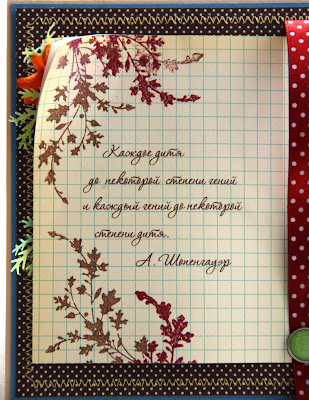 Каждое дитя
до некоторой степени гений
и каждый гений до некоторой
степени дитя.
А. Шопенгауэр